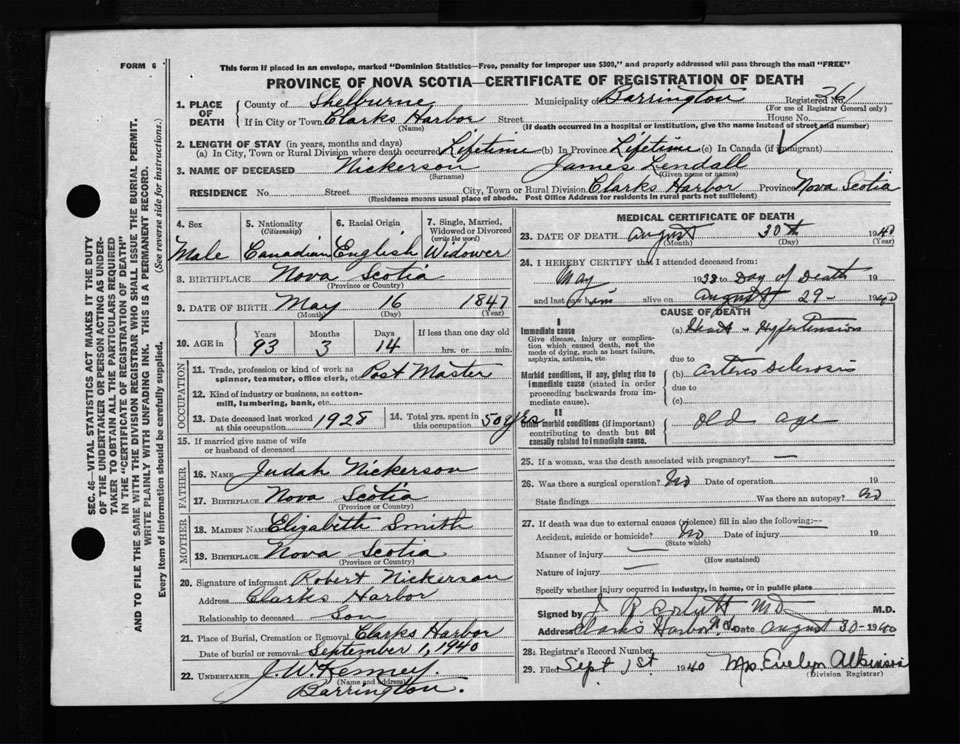 FORM 6
This form if placed in an envelope, marked "Dominion Statistics—Free, penalty for improper use $300," and properly addressed will pass through the mail "FREE"
PROVINCE OF NOVA SCOTIA—CERTIFICATE OF REGISTRATION OF DEATH
SEC. 46—VITAL STATISTICS ACT MAKES IT THE DUTY
OF THE UNDERTAKER OR PERSON ACTING AS UNDER-
TAKER TO OBTAIN ALL THE PARTICULARS REQUIRED
IN THE "CERTIFICATE OF REGISTRATION OF DEATH"
AND TO FILE THE SAME WITH THE DIVISION REGISTRAR WHO SHALL ISSUE THE BURIAL PERMIT.
WRITE PLAINLY WITH UNFADING INK. THIS IS A PERMANENT RECORD.
Every item of information should be carefully supplied. (See reverse side for instructions.)
1. PLACE OF DEATH County of Shelburne Municipality of Barrington Registered No. 361
(For use of Registrar General only)
If in City or Town Clarks Harbor Street House No.
(Name) (If death occurred in a hospital or institution, give the name instead of street and number)
2. LENGTH OF STAY (in years, months and days)
(a) In City, Town or Rural Division where death occurred Lifetime (b) In Province Lifetime (c) In Canada (if immigrant)
3. NAME OF DECEASED Nickerson James Lendall
(Surname) (Given name or names)
RESIDENCE No. Street City, Town or Rural Division Clarks Harbor Province Nova Scotia
(Residence means usual place of abode. Post Office Address for residents in rural parts not sufficient)
4. Sex 5. Nationality (Citizenship) 6. Racial Origin 7. Single, Married, Widowed or Divorced (write the word)
Male Canadian English Widower
8. BIRTHPLACE Nova Scotia
(Province or Country)
9. DATE OF BIRTH May 16 1847
(Month) (Day) (Year)
10. AGE in Years Months Days If less than one day old
93 3 14 hrs. or min.
OCCUPATION
11. Trade, profession or kind of work as spinner, teamster, office clerk, etc. Post Master
12. Kind of industry or business, as cotton-mill, lumbering, bank, etc.
13. Date deceased last worked at this occupation 1928 14. Total yrs. spent in this occupation 50 yrs
15. If married give name of wife or husband of deceased
FATHER
16. NAME Judah Nickerson
17. BIRTHPLACE Nova Scotia
(Province or Country)
MOTHER
18. MAIDEN NAME Elizabeth Smith
19. BIRTHPLACE Nova Scotia
(Province or Country)
20. Signature of informant Robert Nickerson
Address Clarks Harbor
Relationship to deceased Son
21. Place of Burial, Cremation or Removal Clarks Harbor
Date of burial or removal September 1, 1940
22. UNDERTAKER J. W. Kenney
(Name and address)
Barrington.
MEDICAL CERTIFICATE OF DEATH
23. DATE OF DEATH August 30th 1940
(Month) (Day) (Year)
24. I HEREBY CERTIFY that I attended deceased from:
May 1938 to Day of Death 19
and last saw him alive on August 29- 1940
CAUSE OF DEATH
I
Immediate cause (a) Heart - Hypertension
Give disease, injury or complication which caused death, not the mode of dying, such as heart failure, asphyxia, asthenia, etc.
due to
Morbid conditions, if any, giving rise to immediate cause (stated in order proceeding backwards from immediate cause). (b) arterio sclerosis
due to
(c)
II
Other morbid conditions (if important) contributing to death but not causally related to immediate cause. old age
25. If a woman, was the death associated with pregnancy? —
26. Was there a surgical operation? No Date of operation 19
State findings Was there an autopsy? no
27. If death was due to external causes (violence) fill in also the following:—
Accident, suicide or homicide? No Date of injury 19
(State which)
Manner of injury —
(How sustained)
Nature of injury —
Specify whether injury occurred in Industry, in home, or in public place
Signed by M.D. M.D.
Address Clarks Harbor N.S. Date August 30- 1940
28. Registrar's Record Number
29. Filed Sept 1st 1940 Mrs Evelyn Atkinson
(Division Registrar)